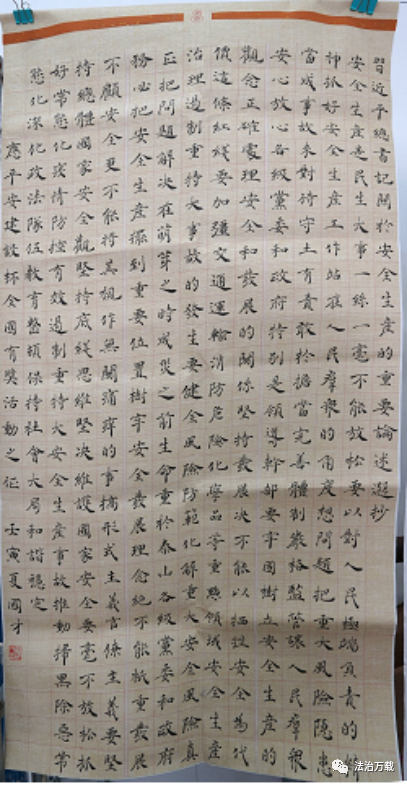 習近平總書記關於安全生產的重要論述選抄
安全生產是民生大事一絲一毫不能放松要以對人民極端負責的精
神抓好安全生產工作站在人民羣衆的角度想問題把重大風險隱患
當成事故來對待守土有責敢於擔當完善體制嚴格監管讓人民羣衆
安心放心各級黨委和政府特别是領導幹部要牢固樹立安全生產的
觀念正確處理安全和發展的關係堅持發展决不能以犧牲安全為代
價這條紅綫要加彊交通運輸消防危險化學品等重點領域安全生產
治理遏制重特大事故的發生要健全風險防範化解重大安全風險真
正把問題解决在萌芽之時成災之前生命重於泰山各級黨委和政府
務必把安全生產擺到重要位置樹牢安全發展理念絶不能衹重發展
不顧安全更不能將其視作無關痛癢的事搞形式主義官僚主義要堅
持總體國家安全觀堅持底綫思維堅决維護國家安全要毫不放松抓
好常態化疫情防控有效遏制重特大安全生產事故推動掃黑除惡常
態化深化政法隊伍教育整頓保持社會大局和諧穩定
應平安建設杯全國有獎活動之征 壬寅夏國才
法治万载